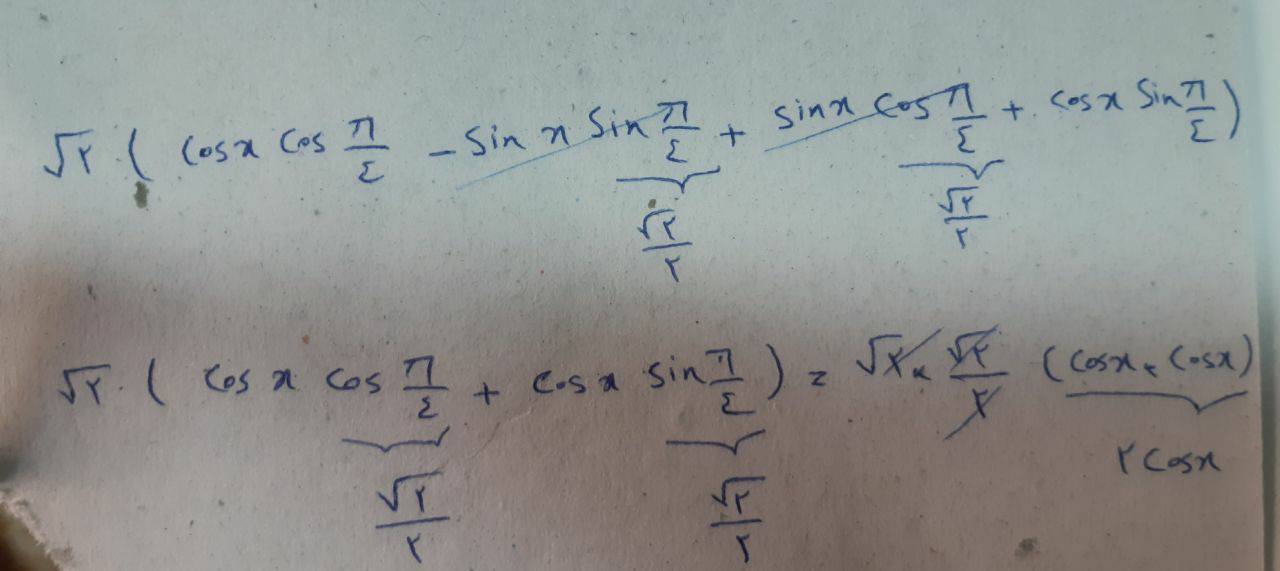 √۲ ( cosx cos π/٤ - sin x sin π/٤ + sinx cos π/٤ + cosx sin π/٤ )
√۲/۲ √۲/۲
√۲ ( cos x cos π/٤ + cosx sin π/٤ ) = √۲ × √۲/۲ (cosx + cosx)
√۲/۲ √۲/۲ ۲ cosx